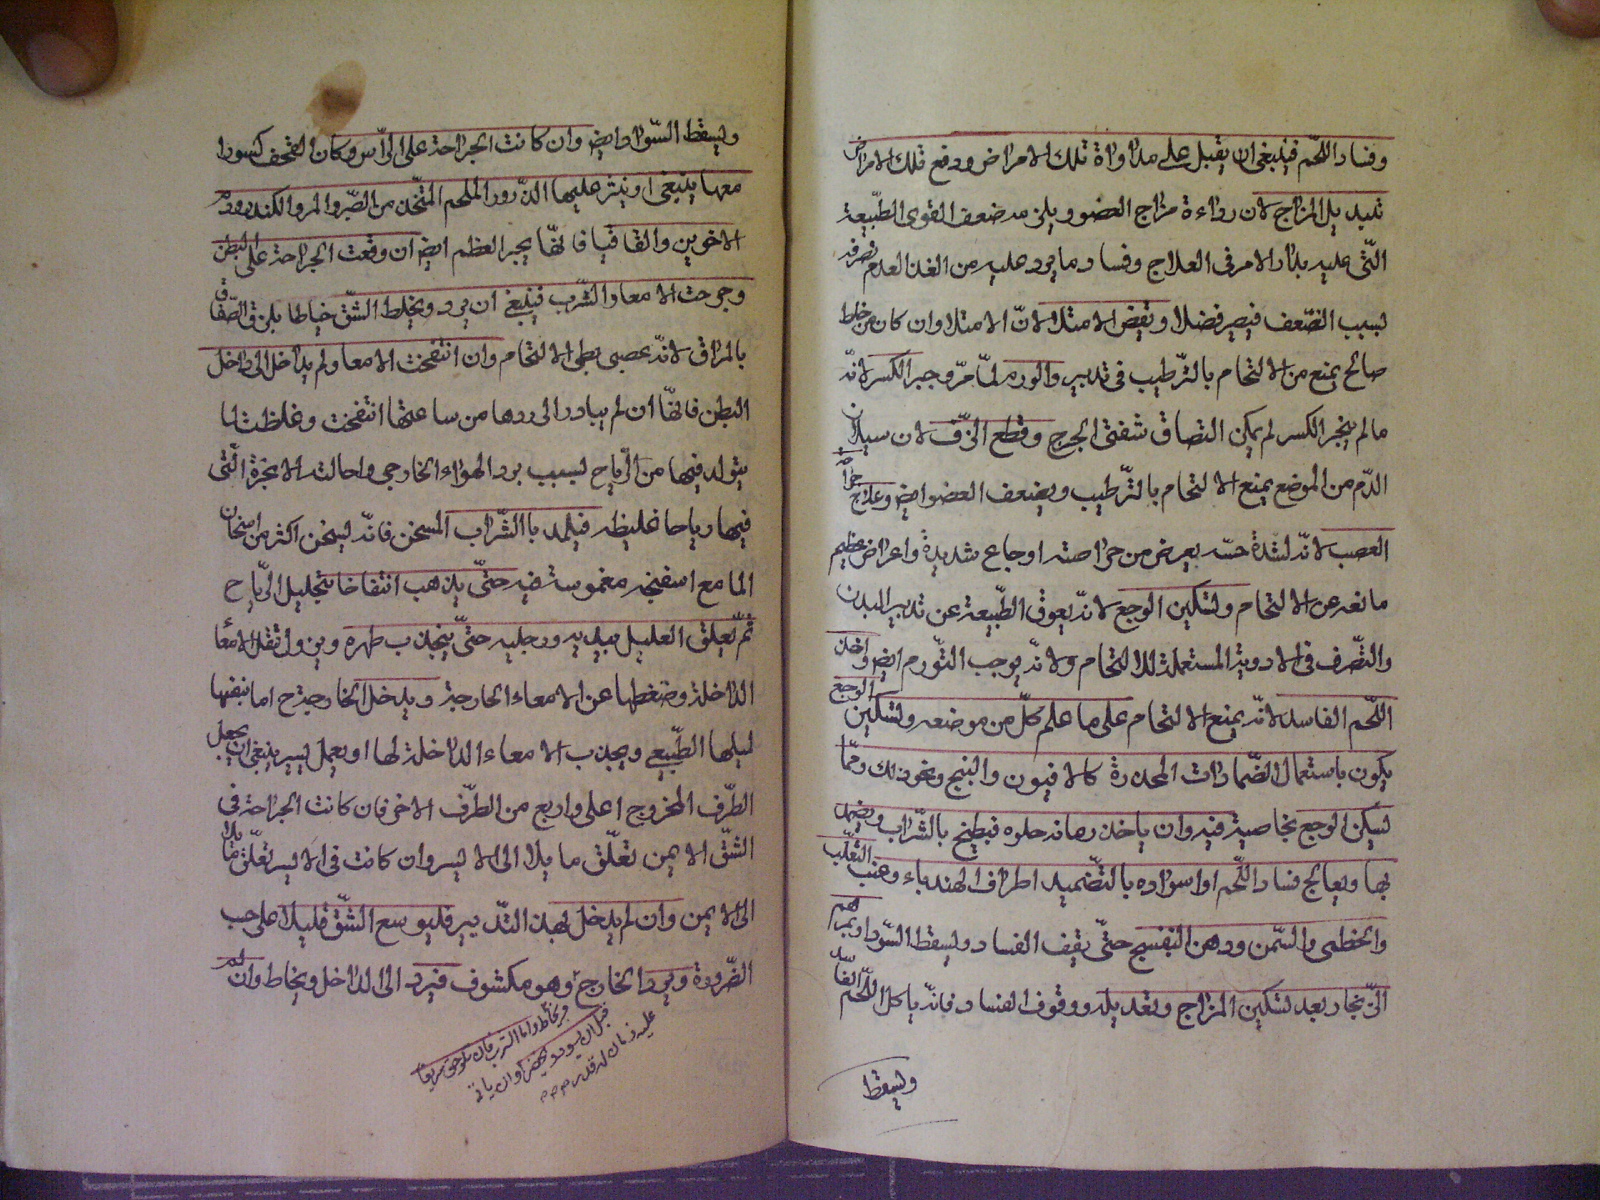 وفساد اللحم فينبغي ان يقبل على مداواة تلك الامراض ودفع تلك الامراض
تبديل المزاج لان رداءة مزاج العضو ويلزمه ضعف القوى الطبيعة
التي عليه مدار الامر في العلاج وفساد ما يرد عليه من الغذا لعدم تصرفه
بسبب الضعف فيصير فضلا ونفض الامتلا لانّ الامتلا وان كان من خلط
صالح يمنع من الالتحام بالترطيب في تدبير والورم لما مرّ وجبر الكسر لانّه
ما لم ينجبر الكسر لم يمكن التصاق شفتي الجرح وقطع النزف لان سيلان
الدّم من الموضع يمنع الالتحام بالترطيب ويضعف العضو ايض وعلاج جراحة
العصب لانّه لشدة حسّه يعرض من جراحته اوجاع شديدة واعراض عظيم
مانعه عن الالتحام وتسكين الوجع لانّه يعوق الطبيعة عن تدبير البدن
والتصرف في الادوية المستعملة للالتحام ولانّه يوجب التورم ايض واخذ
اللحم الفاسد لانّه يمنع الالتحام على ما علم كلّ من موضعه وتسكين الوجع
يكون باستعمال الضمادات المخدرة كالافيون والبنج ونحو ذلك وممّا
يسكن الوجع بخاصية فيه وان ياخذ رمانه حلوه فيطبخ بالشراب ويضمد
بها ويعالج فساد اللحم او اسوداده بالتضميد اطراف الهندباء وعنب الثعلب
والخطمى والسمن ودهن البنفسج حتّى يقف الفساد ويسقط السّواد وبمرهم
الزنجار بعد تسكين المزاج وتعديله ووقوف الفساد فانّه ياكل اللحم الفاسد
ويسقط
ويسقط السّواد ايض وان كانت الجراحة على الرّاس وكان القحف كسورا
معها ينبغي ان ينثر عليها الذّرور الملحم المتّخذ من الصّبر والمر والكندر ودم
الاخوين والقاقيا فانّها يجبر العظم ايض ان وقعت الجراحة على البطن
وجرحت الامعا والثّرب فينبغي ان يرد ويخاط الشّق خياطا يلزق الصّفاق
بالمراق لانّه عصبي بطي الالتحام وان انتفخت الامعا ولم يدخل الى داخل
البطن فانّها ان لم يبادر الى ردها من ساعتها انتفخت وغلظت لما
يتولد فيها من الرّياح بسبب برد الهواء الخارجي واحالته الابخرة الّتي
فيها رياحا غليظه فيلمد باالشّراب المسخن فانّه يسخن اكثر من اسخان
الما مع اسفنجه مغموسة فيه حتّى يذهب انتفاخا بتحليل الرّياح
ثم يعلق العليل بيديه ورجليه حتّى ينجذب ظهره ويزول ثقل الامعا
الداخلة وضغطها عن الامعاء الخارجة ويدخل الخارجة ح اما بنفسها
لميلها الطّبيعي ويجذب الامعاء الداخلة لها او بعمل يسير ينبغي ان يجعل
الطّرف المخروج اعلى وارفع من الطرف الاخر فان كانت الجراحة في
الشق الايمن تعلّق مايلا الى الايسر وان كانت في الايسر تعلّق مايلا
الى الايمن وان لم يدخل بهذا التدبير فليوسع الشّق قليلا على حب
الضرورة ويرد الخارج وهو مكشوف فيرد الى الداخل ويخاط وان لم
ثم يخاط واما الثرب فان يلوحق سريعا
قبل ان يسود ويخضر او ان ياتي
عليه زمان له قدر